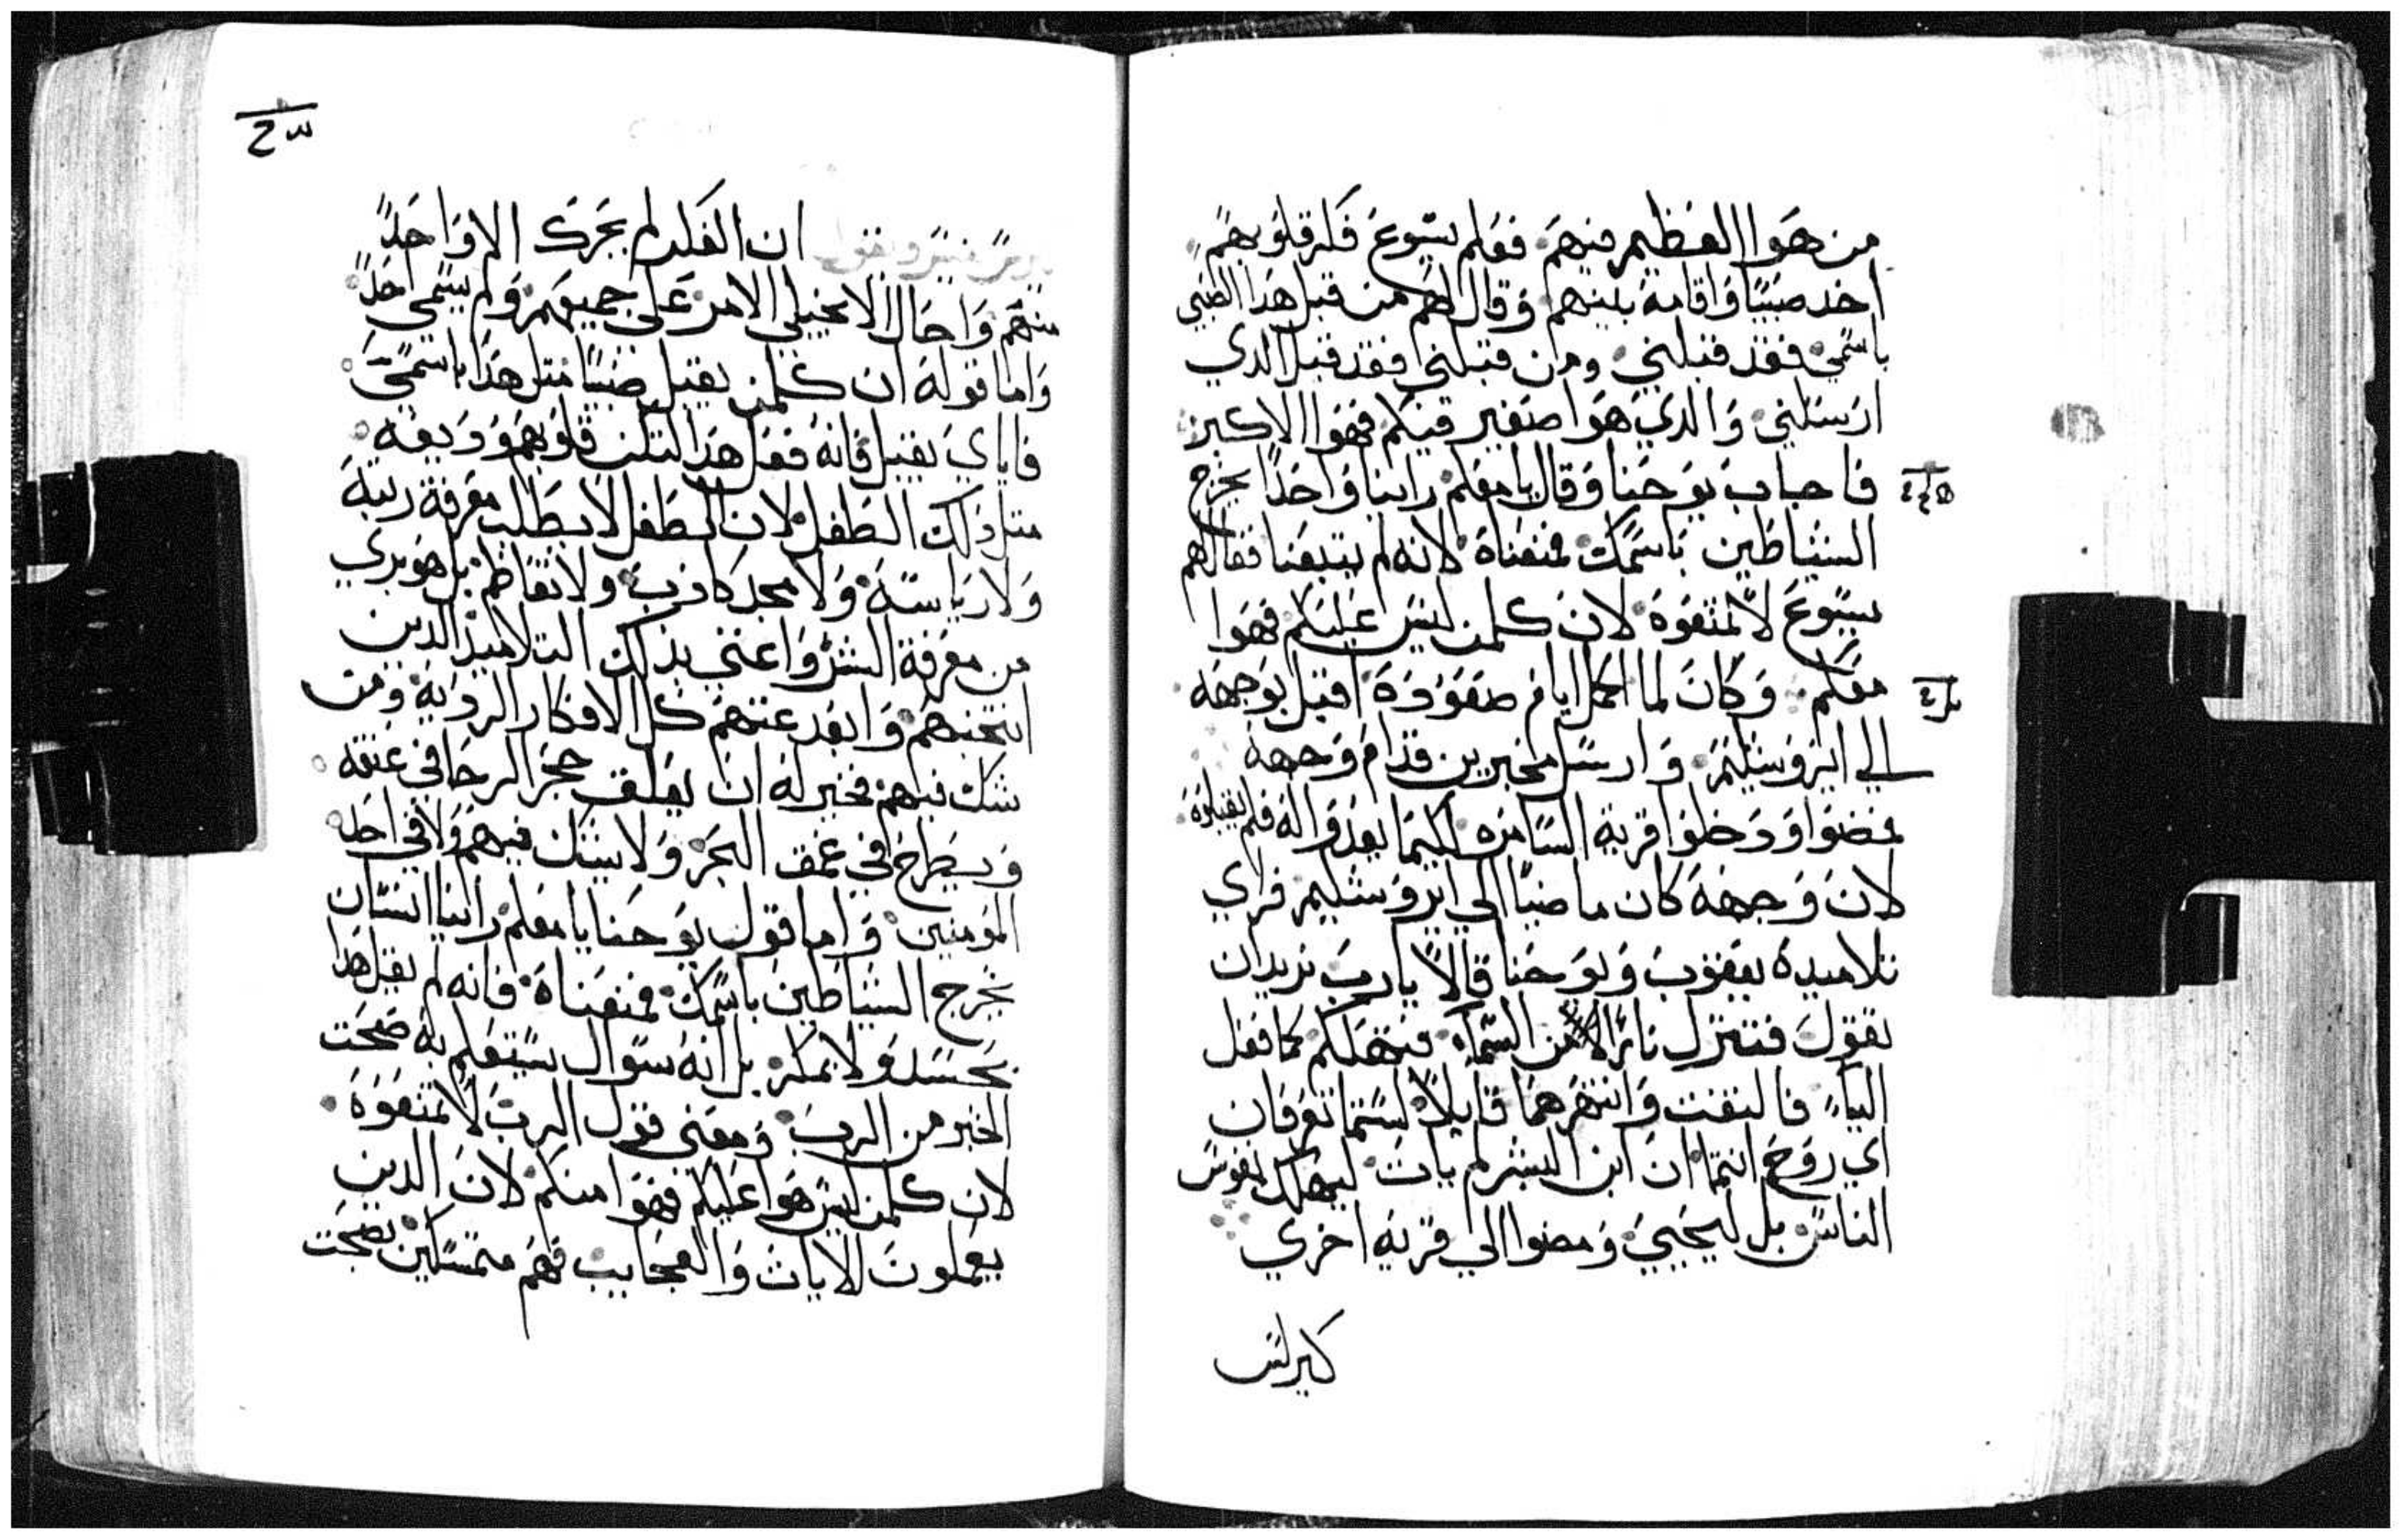 من هوا العظيم فيهم ففلم يسوع فكر قلوبهم
اخد صبيًا واقامه بينهم وقال لهم من قبل هدا الصبي
باسمي فقد قبلني ومن قبلني فقد قبل الدي
ارسلني والدي هوا صغير فيكم فهوا الاكبر
فاجاب يوحنا وقال يا معلم راينا واحدًا يخرج
الشياطين باسمك فمنعناه لانه لم يتبعنا فقال لهم
يسوع لا تمنعوه لان كلمن ليس عليكم فهوا
معكم وكان لما اكمل ايام صعوده اقبل بوجهه
الي ايروشليم وارسل مخبرين قدام وجهه
فمضوا ودخلوا قرية السامره لكيما يعدوا له فلم يقبلوه
لان وجهه كان ماضيًا الي ايروشليم فراي
تلاميده يعقوب ويوحنا قالا يارب تريد ان
نقول فتنزل نارًا من السماء فتهلكهم كما فعل
اليا فالتفت وانتهرهما قايلًا لستما تعرفان
اي روح انتما ان ابن البشر لم يات ليهلك نفوس
الناس بل ليحيي ومضوا الي قرية اخري
كيرلس
ان الفكر لم يحرك الا واحدًا
منهم واحال الانجيلي الامر علي جميعهم ولم يسمي احدًا
واما قوله ان كلمن يقبل صبيًا متل هدا باسمي
فاياي يقبل فانه فعل هدا لتكن قلوبهم وديعه
متل دلك الطفل لان الطفل لا يطلب معرفة رتبة
ولا رياسة ولا مجد كادب ولا تعاظم بل هو بري
من معرفة الشر واعني بدلك التلاميد الدين
انتخبهم وابعد عنهم كل الافكار الرديه ومن
شك فيهم فخير له ان يعلق حجر الرحا في عنقه
ويطرح في عمق البحر ولا يشك فيهم ولا في احد
المومنين واما قول يوحنا يا معلم راينا انسان
يخرج الشياطين باسمك فمنعناه فانه لم يقل هدا
بحسد ولا بمكر بل انه سوال ليتعلم به صحت
الخبر من الرب ومعني قول الرب لا تمنعوه
لان كلمن ليس هوا عليكم فهوا منكم لان الدين
يعملون الايات والعجايب فهم متمسكين بصحت